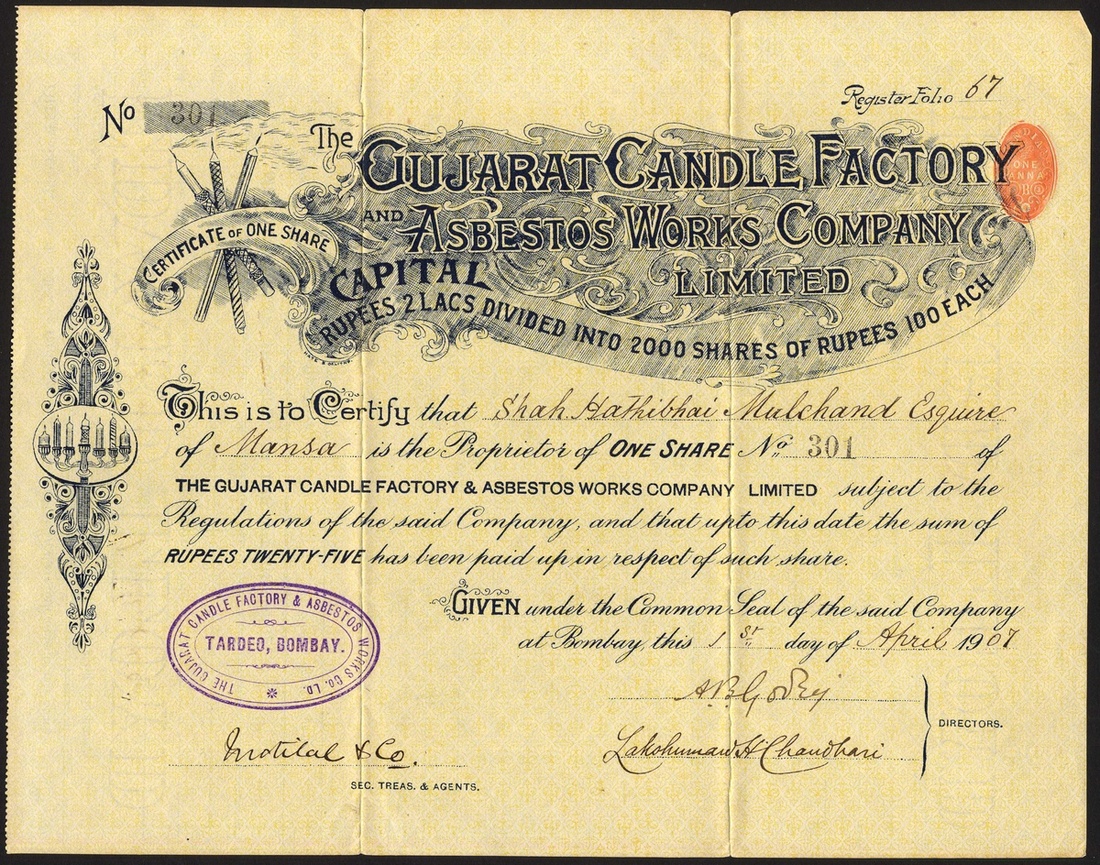 No 301
Register Folio 67
The GUJARAT CANDLE FACTORY
AND ASBESTOS WORKS COMPANY
LIMITED
CERTIFICATE OF ONE SHARE
CAPITAL
RUPEES 2 LACS DIVIDED INTO 2000 SHARES OF RUPEES 100 EACH
INDIA
ONE
ANNA
This is to Certify that Shah Hathibhai Mulchand Esquire
of Mansa is the Proprietor of ONE SHARE No. 301 of
THE GUJARAT CANDLE FACTORY & ASBESTOS WORKS COMPANY LIMITED subject to the
Regulations of the said Company, and that upto this date the sum of
RUPEES TWENTY-FIVE has been paid up in respect of such share.
GIVEN under the Common Seal of the said Company
at Bombay, this 1st day of April 1907
THE GUJARAT CANDLE FACTORY & ASBESTOS WORKS CO. LD.
TARDEO, BOMBAY.
A.B. Godrej
DIRECTORS.
Lakshumaw H Chaudhari
Motilal & Co.
SEC. TREAS. & AGENTS.